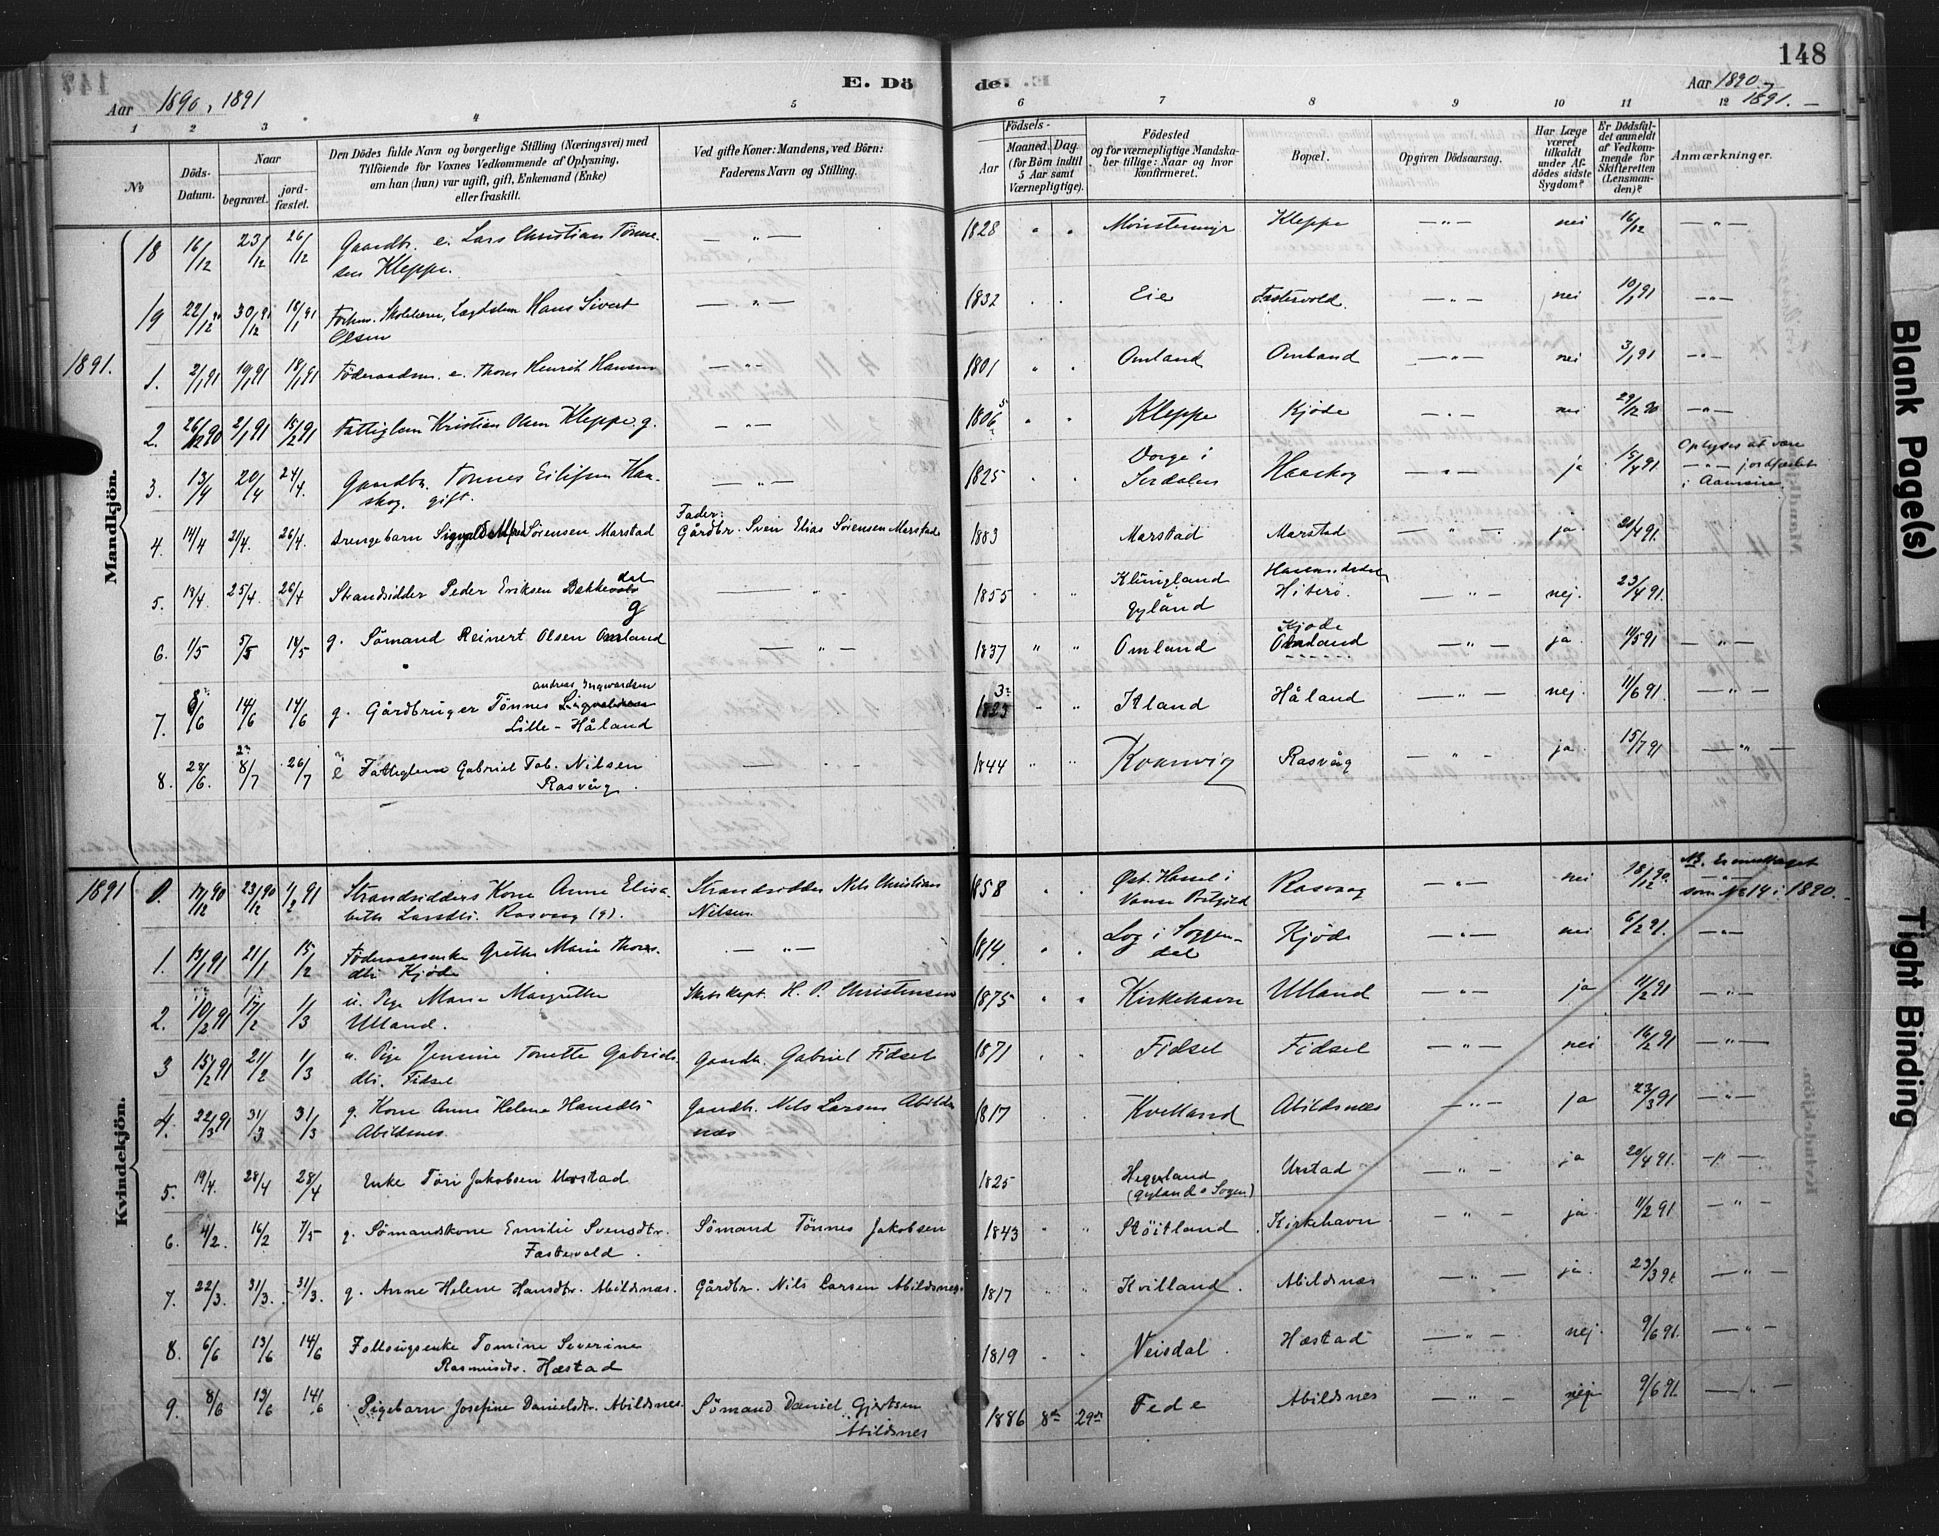 148
Aar 1890, 1891
E. Dö
de.
Aar 1890-
1891.
1 2 3 4 5 6 7 8 9 10 11 12
No
Döds-Datum.
Naar
begravet.
jord-fæstet.
Den Dödes fulde Navn og borgerlige Stilling (Næringsvei) med
Tilföiende for Voxnes Vedkommende af Oplysning,
om han (hun) var ugift, gift, Enkemand (Enke)
eller fraskilt.
Ved gifte Koner: Mandens, ved Börn:
Faderens Navn og Stilling.
Födsels-
Aar
Maaned. Dag.
(for Börn indtil
5 Aar samt
Værnepligtige).
Födested
og for værnepligtige Mandska-
ber tillige: Naar og hvor
konfirmeret.
Bopæl.
Opgiven Dödsaarsag.
Har Læge
været
tilkaldt
under Af-
dödes sidste
Sygdom?
Er Dödsfal-
det anmeldt
af Vedkom-
mende for
Skifteretten
(Lensman-
den)?
Anmærkninger.
Mandkjön.
18 16/12 23/12 26/12 Gaardbr. e. Lars Christian Tönne- — " — 1828 " " Kleppe nei 16/12 — " —
sen Kleppe.
19 22/12 90 30/12 18/1 91 Hans Sivert — " — 1832 . . Eie Fastervold. — " — nei 10/1 91 — " —
Olsen
1891.
1. 2/1 91 19/1 91 19/1 91 Föderaadsm. e. Thore Henrik Hansen — " — 1801 " . Omland Omland — " — nei 3/1 91 — " —
2. 26/12 90 2/1 91 15/2 91 Fattiglem Kristian Olsen Kleppe. g. — " — 1806 " . Kleppe Kjöde — " — nei 29/12 90 — " —
3. 13/4 20/4 24/4 Gaardbr. Tönnes Eilifsen Haa- — " — 1825 . . i Haaskog — " — ja 15/4 91. Oplyses at være
skog. gift. Sirdalen — " — jordfæstet
i Aamsire.
Fader:
4. 14/4 21/4. 26/4 Drengebarn Sørensen Marstad Gårdbr. Sven Elias Sörensen Marstad 1883 Marstad Marstad — " — ja. 21/4 91.
5. 18/4. 25/4. 26/4 Strandsidder Peder Eriksen Bakke dal — " — 1855 " " Klungland Hiterö. — " — nej. 23/4 91.
g Gyland
6. 1/5 5/5 18/5 g. Sömand Reinert Olsen Omland — " — 1837 " " Omland Kjöde Omland — " — ja. 11/5 91 — " —
andreas Ingvardsen
7. 8/6 14/6 14/6 g. Gårdbruger Tönnes 1823 " " Håland — " — nej. 11/6 91. — " —
Lille-Håland
8. 28/6. 8/7 26/7 e Fattiglem Gabriel Tob. Nilsen — " 1844 " " Kvanvig Rasvåg — " — ja. 15/7 91 — " —
Rasvåg.
Kvindekjön.
1891 0. 17/12 90 23/12 90 1/2 91 Strandsidders Kone Anne Elisa- Strandsidder Nils Christian 1858 . . Öst. Hassel i Rasvaag — " — nei 18/12 90. NB. Er medtaget
beth Larsdtr. Rasvaag (g). Nilsen Vanse som No 14 i 1890.
1. 13/1 91 21/1 15/2 Föderaadsenke Grethe Marie Thores- — " — 1814. " . Log i Soggen- Kjöde — " — nei 6/2 91. — " —
dtr. Kjöde dal
2. 10/2 91 17/2 1/3 u. Pige Marie Margrethe Skibskapt. H. P. Christensen 1875 " " Kirkehavn Ulland — " — ja 11/2 91 — " —
Ulland.
3 15/2 91 21/2 1/3 u. Pige Jensine Tonette Gabriels- Gaardb. Gabriel Fidsel 1871 . . Fidsel Fidsel — " — nei 16/2 91 — " —
dtr. Fidsel
4. 22/3 91 31/3 31/3 g. Kone Anne Helene Hansdtr Gaardb. Nils Larsen Abilds- 1817 . . Kvilland Abildsnæs — " — ja 23/3 91 — " —
Abildsnes. næs
5. 19/4. 28/4 28/4 Enke Töri Jakobsen Urstad 1825 Heggland Urstad — " — ja 20/4 91. — " —
(Gylands Sogn)
6. 4/2. 16/2 7/5 g. Sömandskone Emilie Svensdtr. Sömand Tönnes Jakobsen 1843 " " Stöitland. Kirkehavn — " — ja. 11/2 91 — " —
Fastevold.
7. 22/3. 31/3. 31/3. g. Anne Helene Hansdtr. Abildsnæs. Gårdbr. Nils Larsen Abildsnes. 1817 " " Kvilland. Abildsnæs — " — ja. 23/3 91. — " —
8. 6/6 13/6 14/6 Follougsenke Tomine Severine 1819 . . Veisdal. Hæstad — " — nej. 9/6 91. — " —
Rasmusdtr. Hæstad
9. 8/6 13/6 14/6 Pigebarn Josefine Danielsdtr. Abildsnes. Sömand Daniel Gjertsen 1886 8de 29de Fede Abildsnes — " — nej 9/6 91. — " —
Abildsnes
Blank Page(s)
Tight Binding